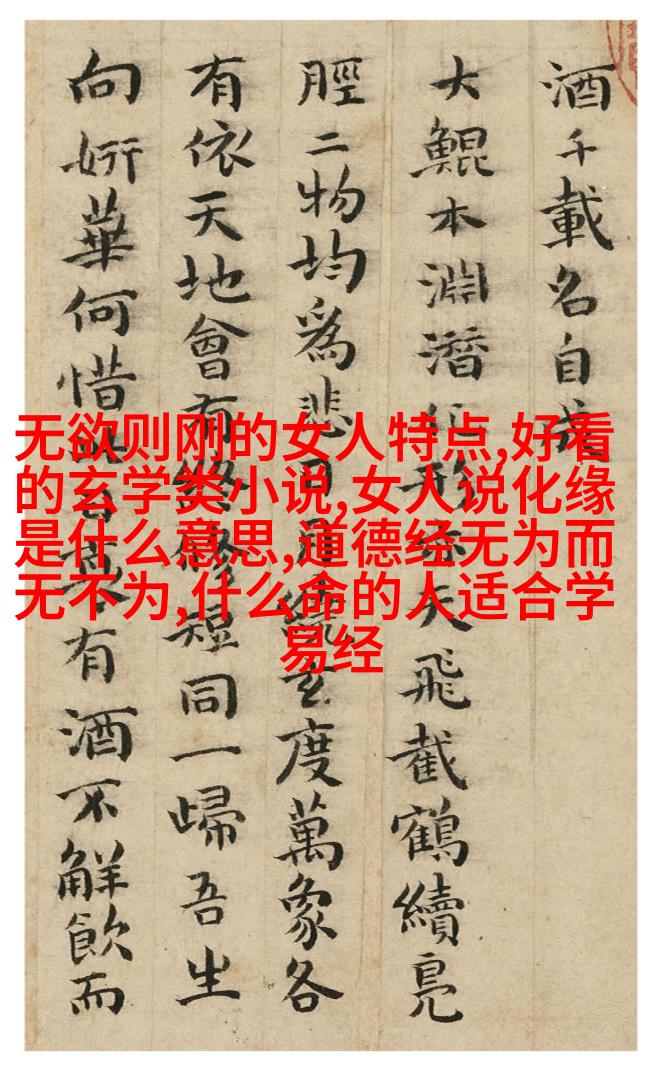 酒千載名自
大鯤本淵潛化形天飛截鶴續鳧
脛二物均爲悲日道玄度萬象各
有依天地會有終修短同一歸吾生
向妍華何惜暮有酒不解飲而
无欲则刚的女人特点,好看
的玄学类小说,女人说化缘
是什么意思,道德经无为而
无不为,什么命的人适合学
易经